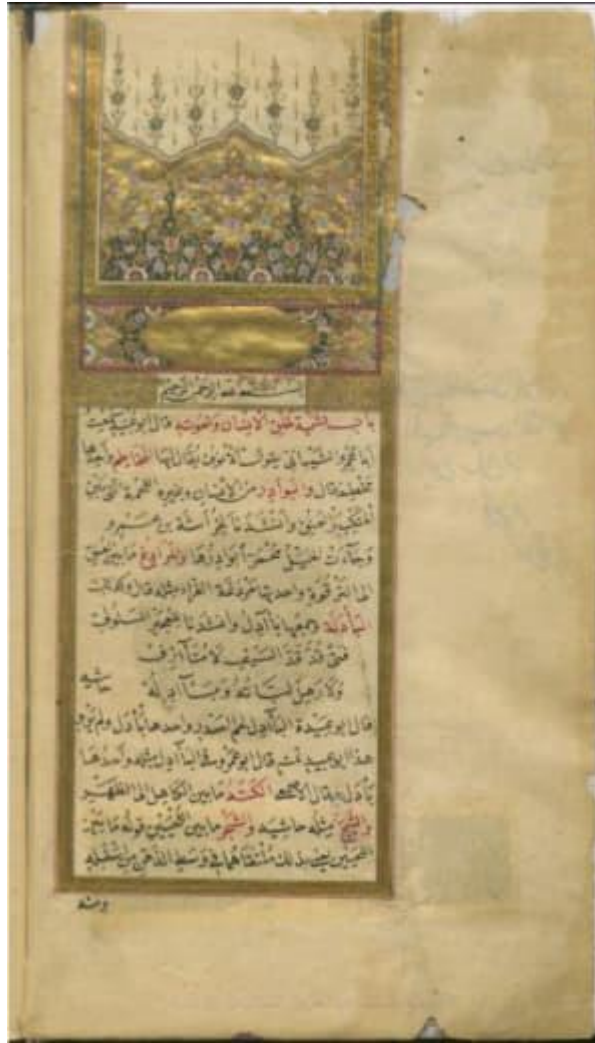 بسم الله الرحمن الرحيم
باب تسمية خلق الانسان ونعوته قال ابو عبيد سمعت
ابا عمرو الشيبانى يقول الانوف يقال لها المخاطم واحدها
مخطم قال والبوادر من الانسان وغيره اللحمة التى بين
المنكب والعنق وانشدنا لخراشة بن عمرو
وجاءت الخيل محمرا بوادرها والفرايغ ما بين العنق
الى الترقوة واحدتها قال
البأدلة وجمعها بآدل وانشدنا للعجير السلولى
فتى قد قد السيف لا متآزف
ولا رهل لباته وبآدله
حاشيه
قال ابو عبيدة البآدل لحم الصدر واحدها بأدل ولم
هذا ابو عبيد قال ابو عمرو فى البآدل مثله واحدها
بأدل وقال الكتد ما بين الكاهل الى الظهر
والثبج مثله حاشيه والشجر ما بين اللحيين قوله ما بين
اللحيين يعنى بذلك ملتقاهما فى وسط الذقن من اسفله
ومنه